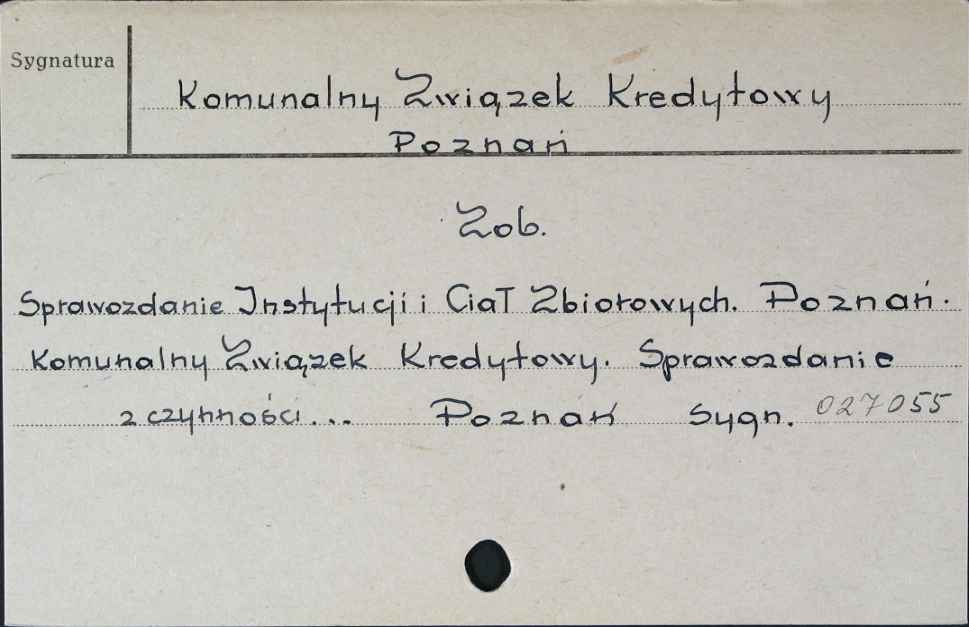 Sygnatura
Komunalny Związek Kredytowy
Poznań
Zob.
Sprawozdanie Instytucji i Ciał Zbiorowych. Poznań.
Komunalny Związek Kredytowy. Sprawozdanie
z czynności... Poznań Sygn. 027055